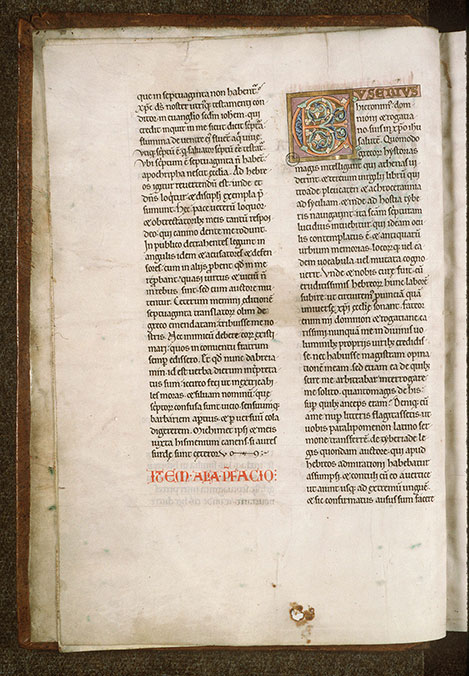 que in septuaginta non habent᷑
xp̄c dn̄s noster utriusq; testamenti con
ditor. in euanglio sedm iohem. qui
credit inquit in me sicut dicit scptu
flumina de uentre ei᷒ fluent aq̄ uiue
Vbi scptum ē septuaginta ñ habent
apochripha nescit ecclia. Ad hebre
os igitur reuertendū est. unde et
dn̄s loquit᷑ & discipli exempla p̄
sumunt. Hec pace ueterū loquor.
& obtrectatorib; meis tantū respō
deo. qui canino dente me rodunt.
In publico detrahentes. legunt in
angulis. idem & accusatores & defen
sores. cum in aliis pbent qd in me
rep̄bant. quasi uirtus & uiciū ñ
in rebus sint. sed cum auctore mu
tentur. Ceterum memini editionē
septuaginta translatorū olim de
greco emendatam tribuisse me no
stris. nec inimicū debere eorū existi
mari. quos in conuentu fratrum
semp edissero. Et qd nunc dabreia
mim id est uerba dierum interpreta
tus sum. iccirco feci ut inextricabi
les moras. & siluam nominū. que
scptorū confusa sunt uicio. sensuumq;
barbariem apti᷒ & p uersuū cola
digererem. Michimet ipsi & meis
iuxta hismenium canens si aures
surde sunt ceterorū.
ITEM ALIA P̄FACIO:
EVSEBIVS
hieronim᷒ dom
nioni & rogatia
no suis in xp̄o ihu
salutē. Quomodo
grecorū hystorias
magis intelligunt qui athenas ui
derint. & tercium uirgilij librū qui
troade p leucaten & acroceraunia
ad syciliam. & inde ad hostia tybe
ris nauigarint. ita scam scpturam
lucidius intuebit᷑ qui ideam ocu
lis contemplatus ē. & antiquarū
urbium memorias. locorūq; uel ea
dem uocabula. uel mutata cogno
uerit. Vnde & nobis cure fuit. cū
eruditissimis hebreorū hunc laborē
subire. ut circuiremus puinciā quā
uniuerse xp̄i ecclie sonant. fateor
enim mi domnion & rogatiane ca
rissimi. nunquā me in diuinis uo
luminib; propriis uirib; credidis
se nec habuisse magistram opinati
onē meam. sed etiam ea de quib;
scire me arbitrabar. interrogare
me solitū. quantomagis de his
sup quib; anceps eram. Deniq; cū
a me nup litteris flagitassetis. ut
uobis paralipomenon latino ser
mone transferrē. de tyberiade le
gis quondam auctorē. qui apud
hebreos admirationi habebatur
assumpsi. & contuli cū eo a uertice
ut aiunt usq; ad extremū unguē.
& sic confirmatus ausus sum facere